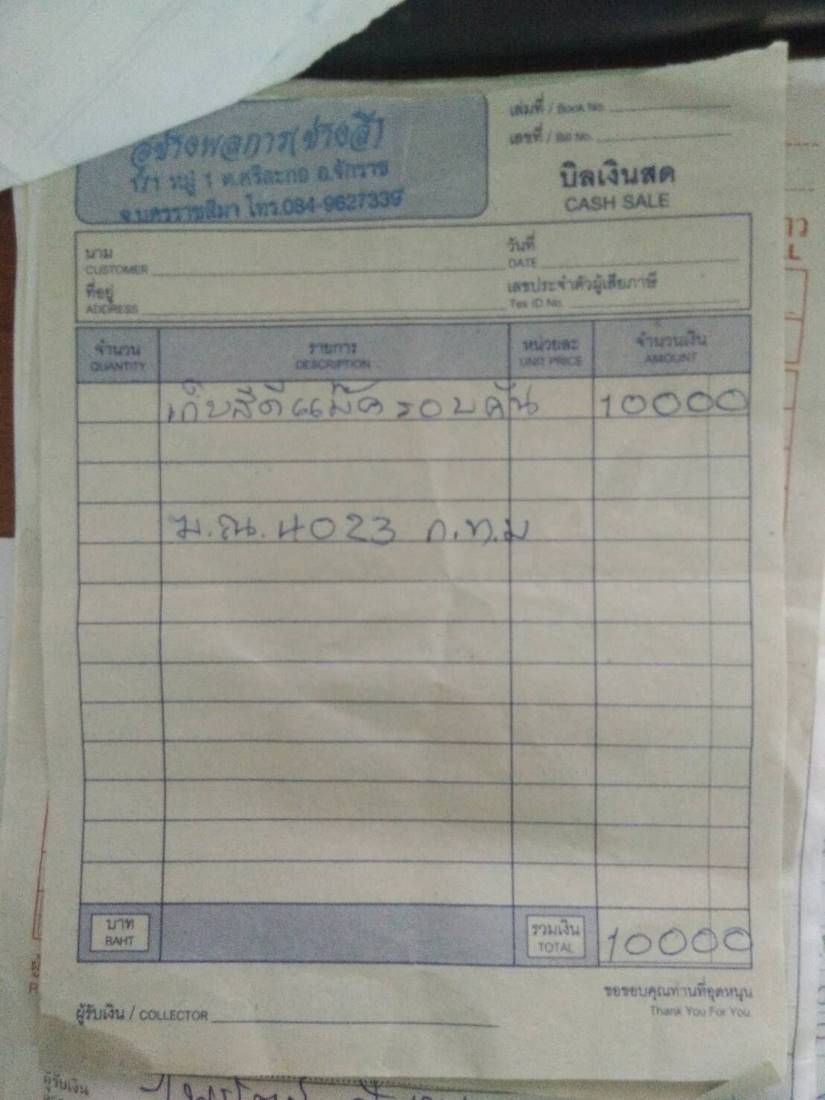 อู่ช่างพลการ(ช่างสี)
171 หมู่ 1 ต.ศรีละกอ อ.จักราช
จ.นครราชสีมา โทร.084-9627339
เล่มที่ / Book No.
เลขที่ / Bill No.
บิลเงินสด
CASH SALE
นาม
CUSTOMER
วันที่
DATE
ที่อยู่
ADDRESS
เลขประจำตัวผู้เสียภาษี
Tax ID No.
จำนวน รายการ หน่วยละ จำนวนเงิน
QUANTITY DESCRIPTION UNIT PRICE AMOUNT
เก็บสีดีแม๊ครอบคัน 10000
ฆ.ณ. 4023 ก.ท.ม
บาท
BAHT
รวมเงิน
TOTAL
10000
ขอขอบคุณท่านที่อุดหนุน
Thank You For You
ผู้รับเงิน / COLLECTOR
ผู้รับเงิน